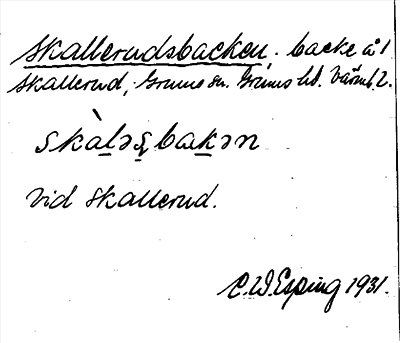 Skallerudsbacken, backe å 1
Skallerud, Grums sn. Grums hd. Värml. 2.
skàləʂbakən
Vid Skallerud.
C.W. Esping 1931.